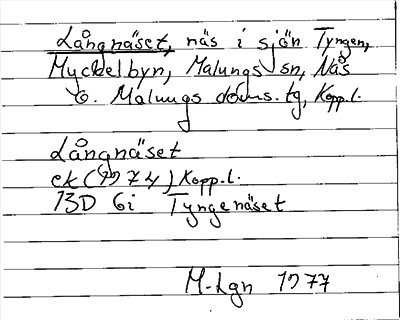 Långnäset, näs i sjön Tyngen,
Myckelbyn, Malungs sn, Nås
o. Malungs doms. tg, Kopp.l.
Långnäset
ek (1974) Kopp.l.
13D 6i Tyngenäset
M-Lgn 1977